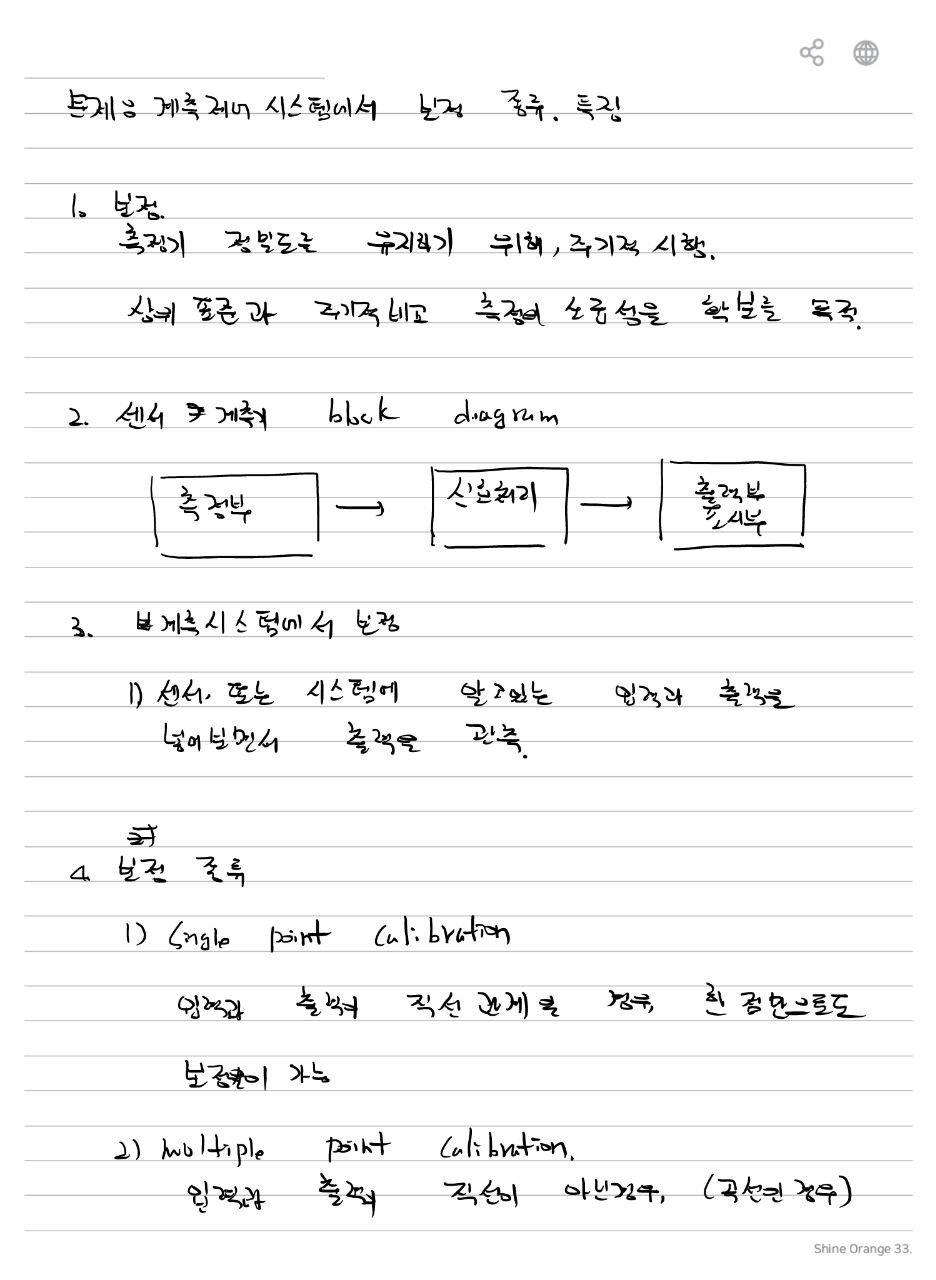 문제) 계측제어 시스템에서 보정 종류. 특징
1. 보정.
측정기 정밀도를 유지하기 위해, 주기적 시행.
상위 표준과 주기적 비교 측정의 소급성을 확보를 목적.
2. 센서 계측기 block diagram
측정부 → 신호처리 → 출력부
표시부
3. 계측시스템에서 보정
1) 센서. 또는 시스템에 알고있는 입력과 출력을
넣어보면서 출력을 관측.
4. 보정 종류
1) Single point calibration
입력과 출력이 직선 관계 경우, 한 점만으로도
보정이 가능
2) multiple point calibration.
입력과 출력이 직선이 아닌경우, (곡선인 경우)
Shine Orange 33.